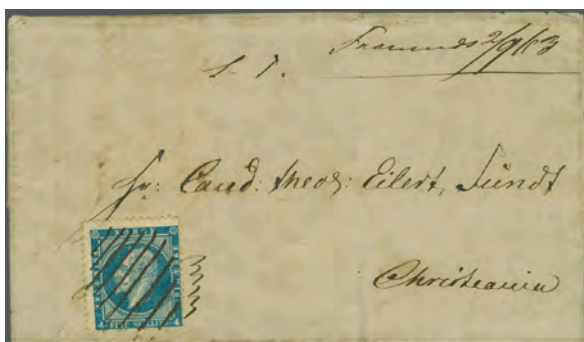 Framnæs 2/9/63
S. T.
Hr: Cand: theol: Eilert, Sundt
Christiania